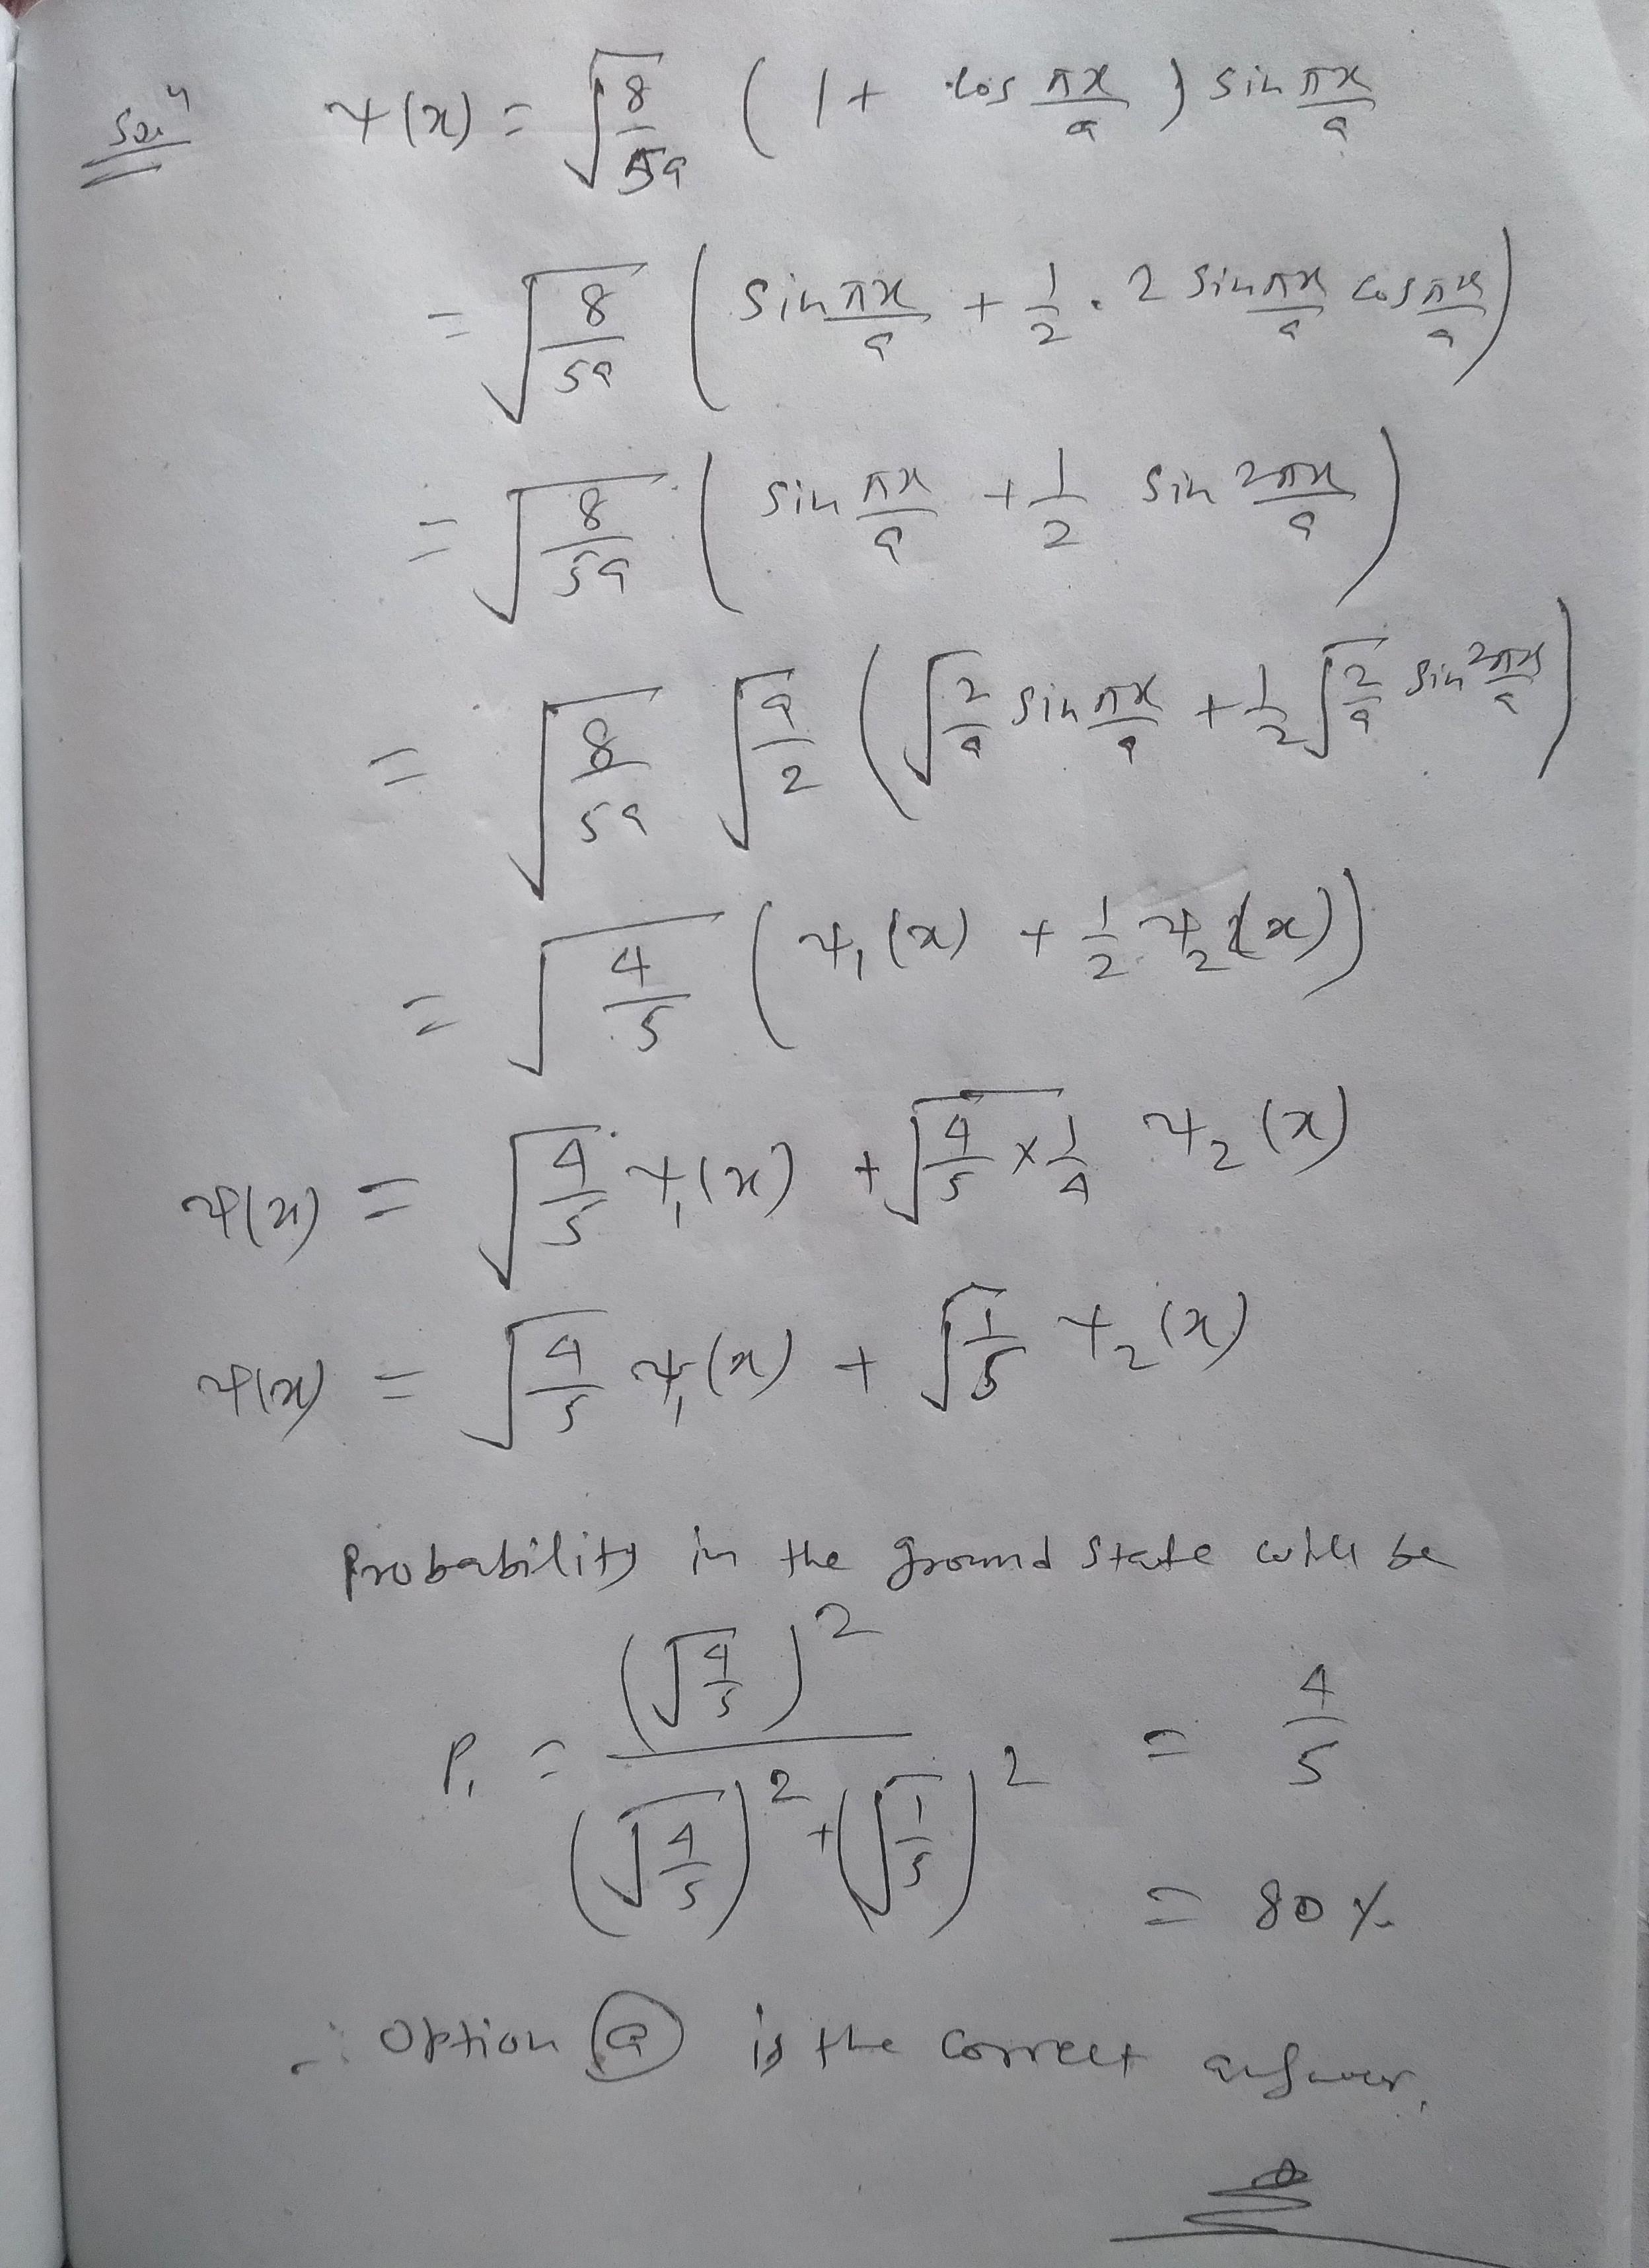 Solⁿ ψ(x) = √(8/5a) (1 + cos πx/a) sin πx/a
= √(8/5a) (sin πx/a + 1/2 · 2 sin πx/a cos πx/a)
= √(8/5a) (sin πx/a + 1/2 sin 2πx/a)
= √(8/5a) √(a/2) (√(2/a) sin πx/a + 1/2 √(2/a) sin 2πx/a)
= √(4/5) (ψ₁(x) + 1/2 ψ₂(x))
ψ(x) = √(4/5) ψ₁(x) + √(4/5 × 1/4) ψ₂(x)
ψ(x) = √(4/5) ψ₁(x) + √(1/5) ψ₂(x)
Probability in the ground state will be
P₁ = (√(4/5))² / ((√(4/5))² + (√(1/5))²) = 4/5
= 80%
∴ Option (a) is the correct answer.